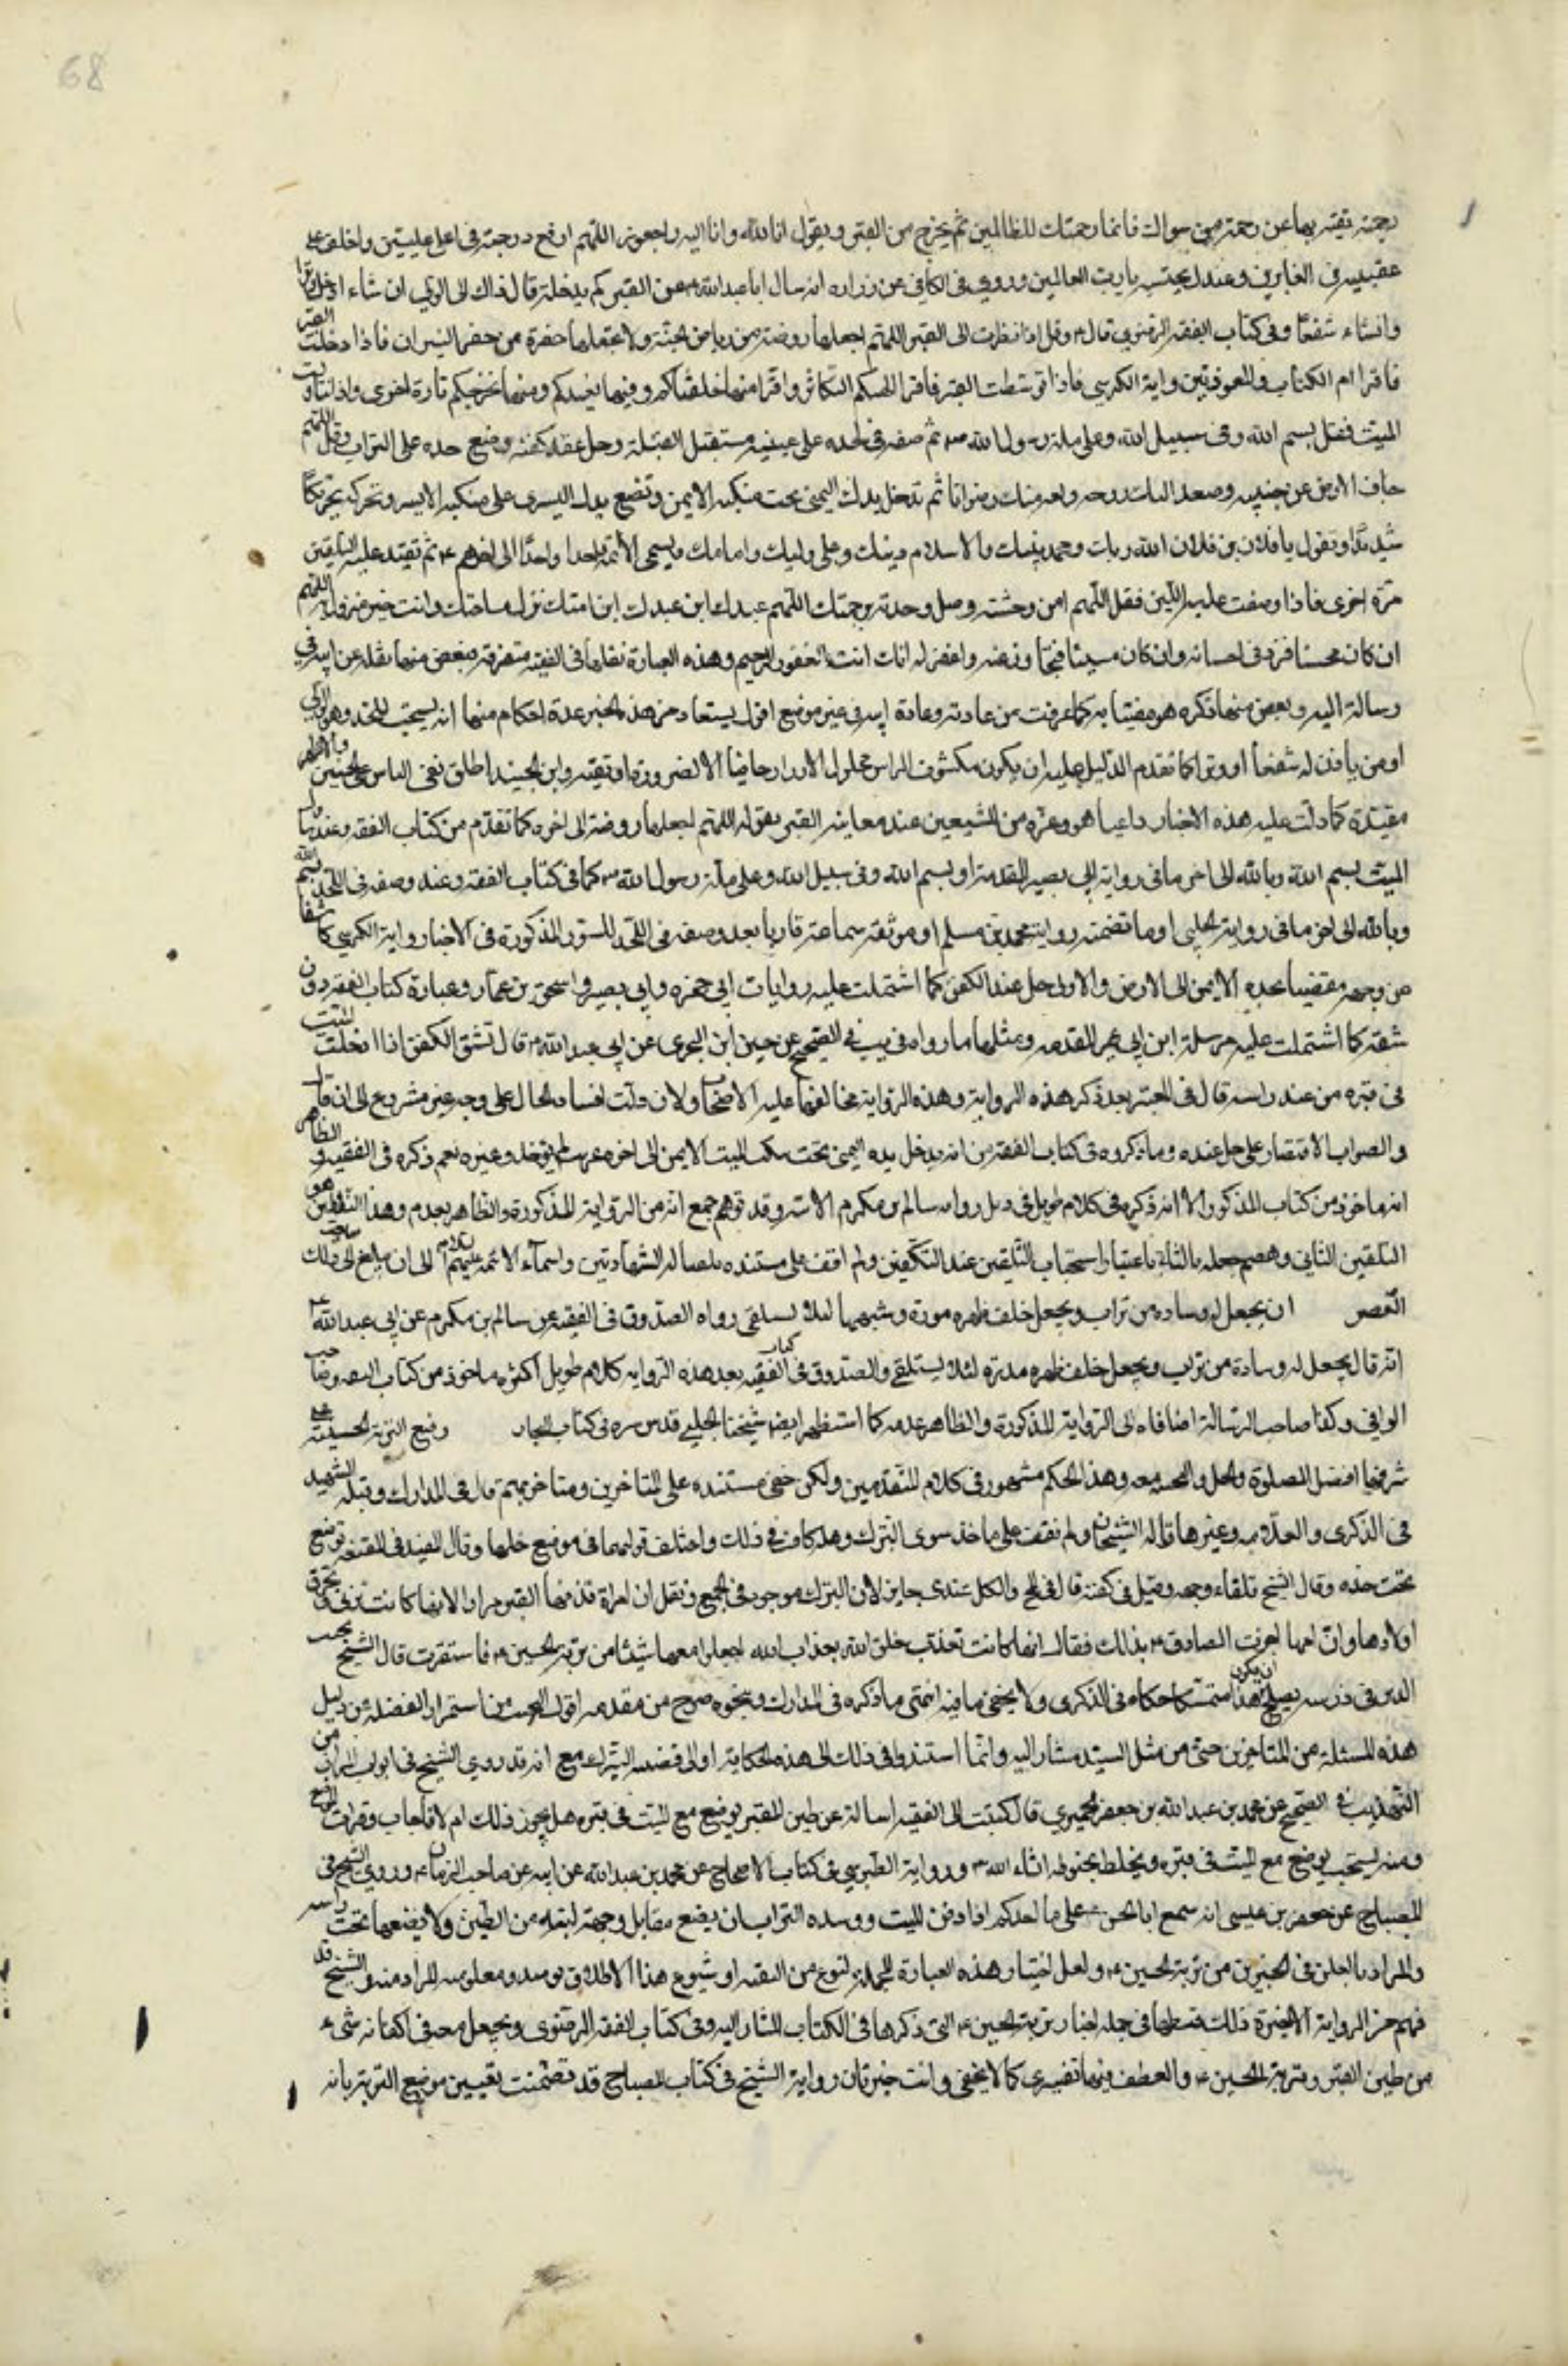 68
رحمة تغنيه بها عن رحمة من سواك فانما رحمتك للظالمين ثم يخرج من القبر ويقول انا لله وانا اليه راجعون اللهم ارفع درجته في اعلى عليين واخلف على
عقبه في الغابرين وعندك نحتسبه يا رب العالمين وروى في الكافي عن زراره انه سال ابا عبد الله عن القبر كم يدخله قال ذاك الى الولي ان شاء ادخل وترا
وانشاء شفعا وفي كتاب الفقه الرضوي قال وقل اذا نظرت الى القبر اللهم اجعلها روضة من رياض الجنة ولا تجعلها حفرة من حفر النيران فاذا دخلت القبر
فاقرا ام الكتاب والمعوذتين واية الكرسي فاذا توسطت القبر فاقرا الهيكم التكاثر واقرا منها خلقناكم وفيها نعيدكم ومنها نخرجكم تارة اخرى واذا تناولت
الميت فقل بسم الله وفي سبيل الله وعلى ملة رسول الله ثم ضعه في لحده على يمينه مستقبل القبلة وحل عقد كفنه وضع خده على التراب وقل اللهم
جاف الارض عن جنبيه وصعد اليك روحه ولقه منك رضوانا ثم تدخل يدك اليمنى تحت منكبه الايمن وتضع يدك اليسرى على منكبه الايسر وتحركه تحريكا
شديدا وتقول يا فلان بن فلان الله ربك ومحمد نبيك والاسلام دينك وعلي وليك وامامك ويسمى الائمة واحدا واحدا الى اخرهم ثم تعيد عليه التلقين
مرة اخرى فاذا وضعت عليه اللبن فقل اللهم امن وحشته وصل وحدته برحمتك اللهم عبدك ابن عبدك ابن امتك نزل بساحتك وانت خير منزول به اللهم
ان كان محسنا فزد في احسانه وان كان مسيئا فتجاوز عنه واغفر له انك انت الغفور الرحيم وهذه العبارة نقلها في الفقيه متفرقة فبعض منها نقله عن ابيه في
رسالته اليه وبعض منها ذكره هو مفتيا به كما عرفت من عادته وعادة ابيه في غير موضع اقول يستفاد من هذه الخبر عدة احكام منها انه يستحب للملحد وهو الولي
او من ياذن له شفعا او وترا كما تقدم الدليل عليه ان يكون مكشوف الراس محلول الازرار حافيا الا لضرورة او تقية وابن الجنيد اطلق نفي الباس عن الخفين والاظهر
مقيدة كما دلت عليه هذه الاخبار داعيا هو وغيره من المشيعين عند معاينة القبر بقوله اللهم اجعلها روضة الى اخره كما تقدم من كتاب الفقه وعند تناول
الميت بسم الله وبالله الى اخر ما في رواية ابي بصير المقدمة او بسم الله وفي سبيل الله وعلى ملة رسول الله كما في كتاب الفقه وعند وضعه في اللحد بسم الله
وبالله الى اخر ما في رواية الحلبي او ما تضمنته رواية محمد بن مسلم او موثقة سماعة قاريا بعد وضعه في اللحد السور المذكورة في الاخبار واية الكرسي كاشفا
عن وجهه مفضيا بخده الايمن الى الارض والاولى حل عقد الكفن كما اشتملت عليه روايات ابي حمزه وابي بصير واسحق بن عمار وعبارة كتاب الفقه دون
شقه كما اشتملت عليه مرسلة ابن ابي عمير المقدمه ومثلها ما رواه في يب في الصحيح عن حفص ابن البختري عن ابي عبد الله قال تشق الكفن اذا ادخلت الميت
في قبره من عند راسه قال في المعتبر بعد ذكر هذه الرواية وهذه الرواية مخالفة لما عليه الاصحاب ولان ذلك افساد للمال على وجه غير مشروع الى ان قال
والصواب الاقتصار على حل عقده وما ذكروه في كتاب الفقه من انه يدخل يده اليمنى تحت منكب الميت الايمن الى اخره غريب لم يوجد في غيره نعم ذكره في الفقيه والظاهر
انه ماخوذ من كتاب المذكور الا انه ذكره في كلام طويل في ذيل رواية سالم بن مكرم الاتيه وقد توهم جمع انه من الرواية المذكورة والظاهر بعدم وهذا التلقين هو
التلقين الثاني وبعضهم جعله ثالثا باعتبار استحباب التلقين عند التكفين ولم اقف على مستنده الشهادتين واسماء الائمة عليهم السلام الى ان بلغ الى ذلك
ان يجعل له وسادة من تراب ويجعل خلف ظهره مدرة وشبهها لئلا يستلقي رواه الصدوق في الفقيه عن سالم بن مكرم عن ابي عبد الله
انه قال يجعل له وسادة من تراب ويجعل خلف ظهره مدرة لئلا يستلقي والصدوق في كتاب الفقيه بعد هذه الرواية كلام طويل اكثره ماخوذ من كتاب الفقه وصاحب
الوافي وكذا صاحب الرسالة اضافاه الى الرواية المذكورة والظاهر عدمه كما استظهره ايضا شيخنا المجلسي قدس سره في كتاب البحار وضع التربة الحسينية على
شرفها افضل الصلوة والسلام معه وهذا الحكم مشهور في كلام المتقدمين ولكن خفي مستنده على المتاخرين ومتاخريهم قال في المدارك وقبله الشهيد
في الذكرى والعلامة وغيرها قاله الشيخان ولم نقف على ماخذ سوى التبرك ولعله كاف في ذلك واختلف قولهما في موضع جعلها وقال المفيد في المقنعه توضع
تحت خده وقال الشيخ تلقاء وجهه وقيل في كفنه قال في لح والكل عندي جايز لان التبرك موجود في الجميع ونقل ان امراة قذفها القبر مرارا لانها كانت تزني وتحرق
اولادها وان امها اخبرت الصادق بذلك فقال انها كانت تعذب خلق الله بعذاب الله اجعلوا معها شيئا من تربة الحسين فاستقرت قال الشيخ نجيب
الدين في درسه يصلح ان يكون هذا متمسكا حكاه في الذكرى ولا يخفى ما فيه انتهى ما ذكره في المدارك وبنحوه صرح من تقدمه اقول العجب من استمرار الغفلة عن دليل
هذه المسئلة من المتاخرين حتى من مثل السيد مشار اليه وانما استندوا في ذلك الى هذه الحكاية او الى قصد التبرك مع انه قد روى الشيخ في ابواب المزار من
التهذيب في الصحيح عن محمد بن عبد الله بن جعفر الحميري قال كتبت الى الفقيه اساله عن طين القبر يوضع مع الميت في قبره هل يجوز ذلك ام لا فاجاب وقرات التوقيع
ومنه نسخت يوضع مع الميت في قبره ويخلط بحنوطه انشاء الله ورواية الطبرسي في كتاب الاحتجاج عن محمد بن عبد الله عن ابيه عن صاحب الزمان وروى الشيخ في
المصباح عن جعفر بن عيسى انه سمع ابا الحسن يقول ما على احدكم اذا دفن الميت ووسده التراب ان يضع مقابل وجهه لبنة من الطين ولا يضعها تحت راسه
والمراد بالطين في الخبرين من تربة الحسين ولعل اختيار هذه العبارة المجملة لنوع من التقيه او شيوع هذا الاطلاق يومئذ ومعلومية المراد منه والشيخ قد
فهم من الرواية الاخيرة ذلك فنظمها في جملة اخبار تربة الحسين التي ذكرها في الكتاب المشار اليه وفي كتاب الفقه الرضوي ويجعل معه في اكفانه شيء
من طين القبر وتربة الحسين والعطف فيها تفسيري كما لا يخفى وانت خبير بان رواية الشيخ في كتاب المصباح قد تضمنت تعيين موضع التربة بانه